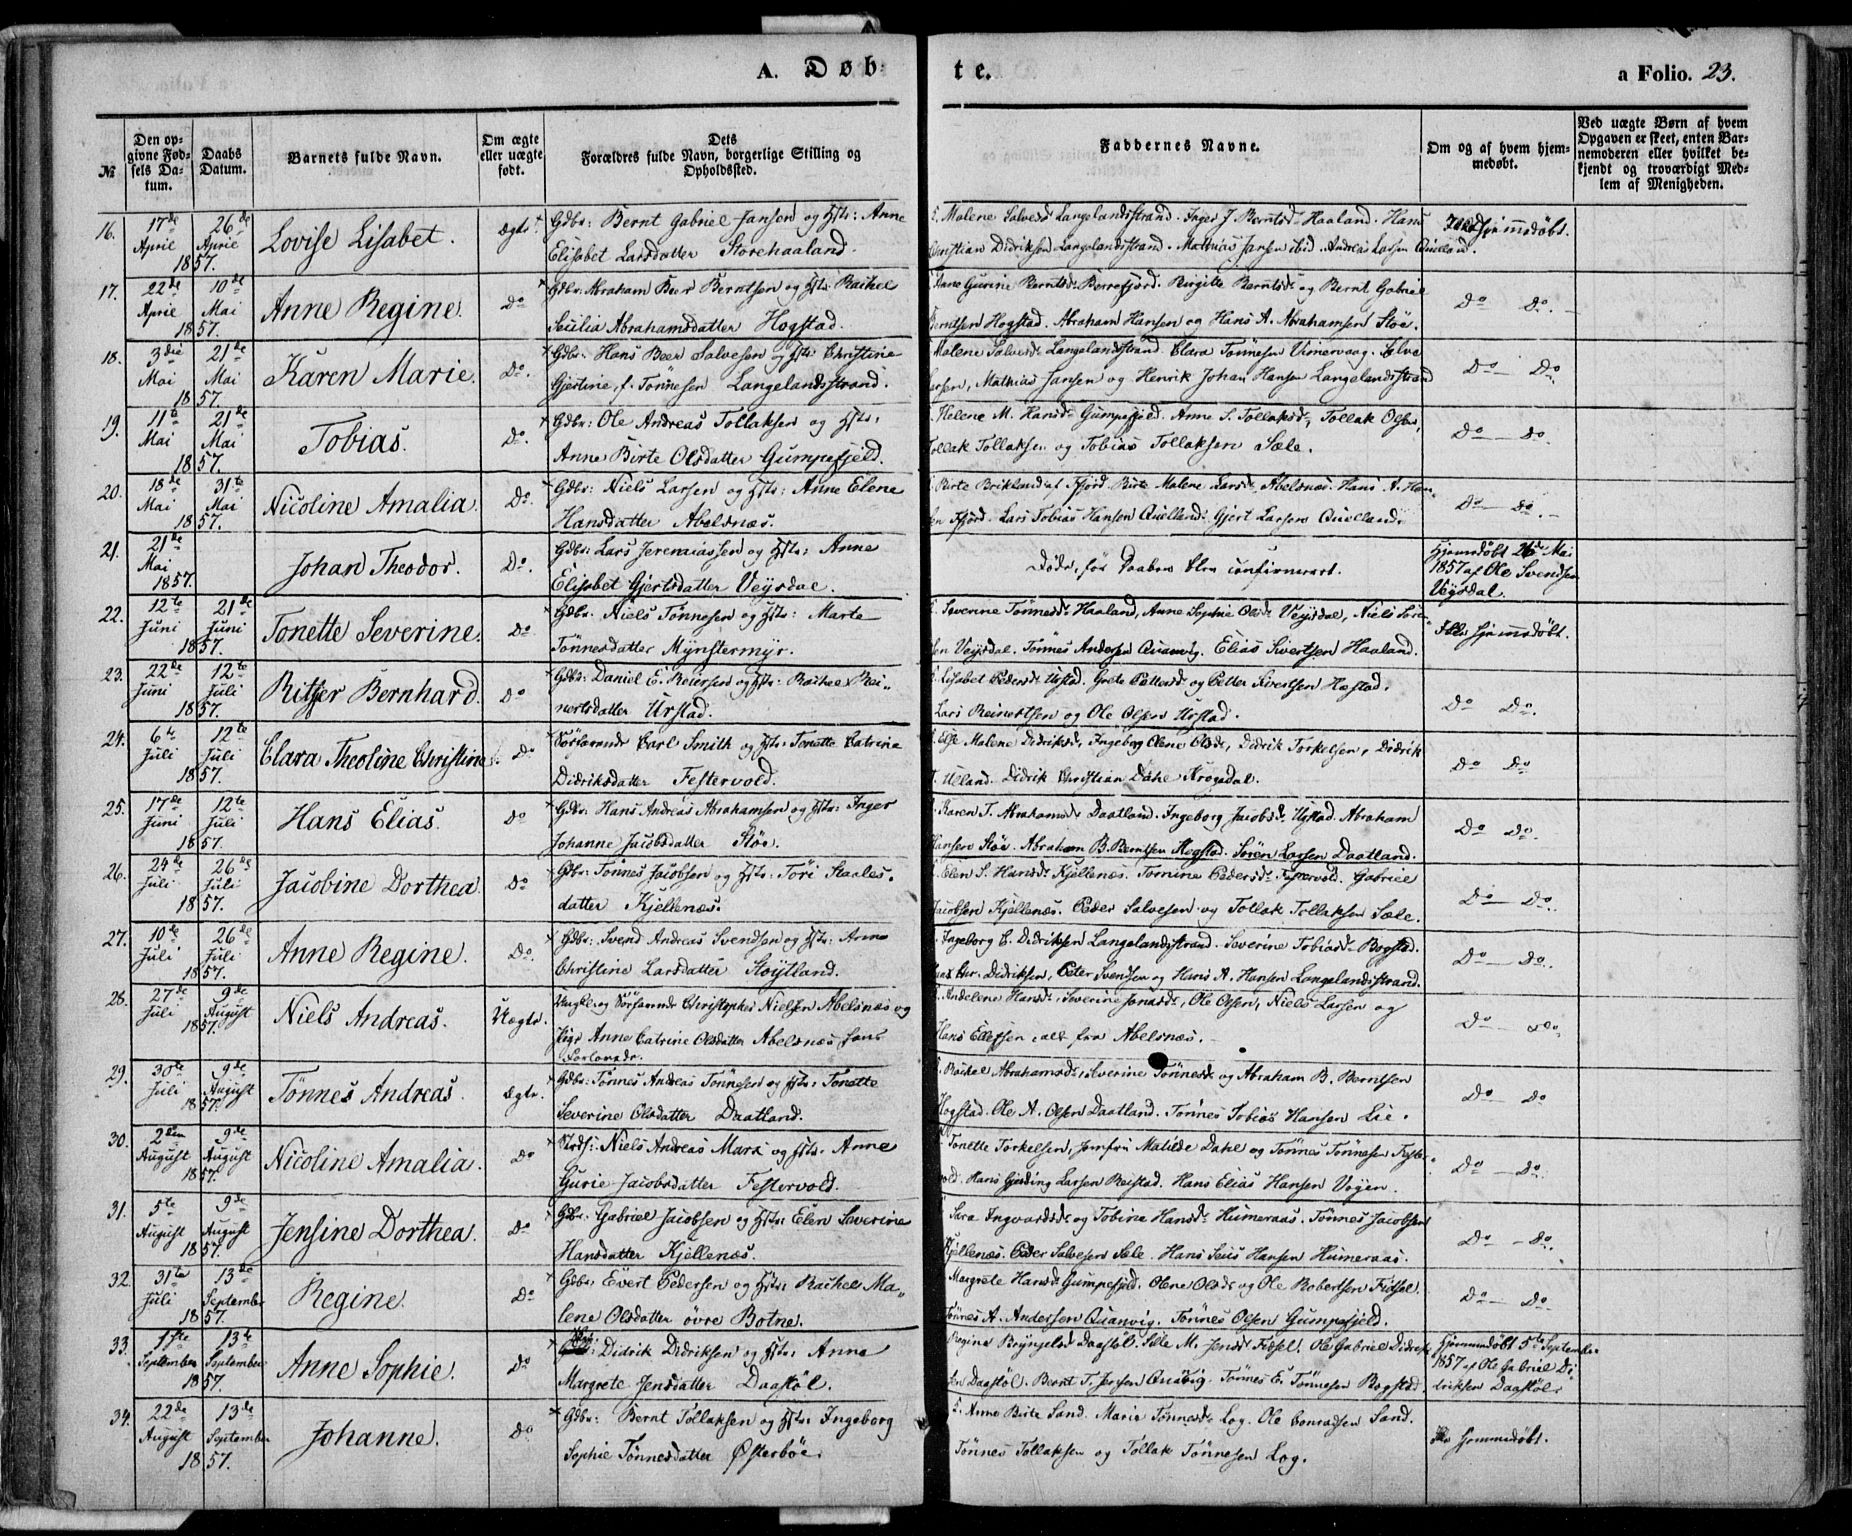 A. Døb- te. a Folio. 23.
No
Den op-
givne Fød-
sels Da-
tum.
Daabs
Datum.
Barnets fulde Navn.
Om ægte
eller uægte
født.
Dets
Forældres fulde Navn, borgerlige Stilling og
Opholdssted.
Faddernes Navne.
Om og af hvem hjem-
medøbt.
Ved uægte Børn af hvem
Opgaven er skeet, enten Bar-
nemoderen eller hvilket be-
kjendt og troværdigt Med-
lem af Menigheden.
16. 17de April 1857. 26de April Lovise Lisabet. Ægte. Gdbr: Bernt Gabriel Jansen og Hstr: Anne
Elisabet Larsdatter Storehaaland.
Malene Salvesd. Langelandsstrand. Inger J. Berntsd. Haaland. Hans
Christian Didriksen Langelandsstrand. Mathias Jansen ibid. Andreas Larsen Qvelland.
Ikke hjemmedøbt.
17. 22de April 1857. 10de Mai Anne Regine. Do Gdbr. Abraham Beer Berntsen og Hstr: Rachel
Seculia Abrahamsdatter Hogstad.
Ane Gurine Berntsd. Borrefjord. Birgite Berntsd. og Bernt Gabriel
Berntsen Hogstad. Abraham Hansen og Hans A. Abrahamsen Stöe.
Do Do.
18. 3die Mai 1857 21de Mai Karen Marie. Do. Gdbr. Hans Beer Salvesen og Hstr. Christine
Gjertine, f. Tönnesen Langelandsstrand.
Malene Salvesd. Langelandsstrand. Clara Tönnesen Vimervaag. Salve
Larsen, Mathias Jansen og Henrik Johan Hansen Langelandsstrand
Do Do.
19. 11te Mai 1857. 21de Mai Tobias. Do. Gdbr: Ole Andreas Tollaksen og Hstr:
Anne Birte Olsdatter Gumpefjeld.
Helene M. Hansd. Gumpefjeld. Anne S. Tollaksd., Tollak Olsen,
Tollak Tollaksen og Tobias Tollaksen Sæle.
Do Do.
20. 18de Mai 1857. 31te Mai Nicoline Amalia. Do. Gdbr: Niels Larsen og Hstr: Anne Elene
Hansdatter Abelsnæs.
Birte Malene Larsd. Abelsnæs. Hans A. Han-
sen Fjord. Lars Tobias Hansen Qvelland. Gjert Larsen Qvelland.
Do Do.
21. 21de Mai 1857. Johan Theodor. Do. Gdbr: Lars Jeremiassen og Hstr: Anne
Elisabet Gjertsdatter Veisdal.
Døde, før Daaben blev confirmeret.
Hjemdøbt 26de Mai
1857 af Ole Svendsen
Veisdal.
22. 12te Juni 1857. 21de Juni Tonette Severine. Do Gdbr: Niels Tönnesen og Hstr: Marte
Tönnesdatter Mynstermyr.
Severine Tönnesd. Haaland, Anne Sophie Olsd. Veisdal, Niels Sören-
sen Veisdal. Tönnes Andersen Qvanvig. Elias Sivertsen Haaland.
Ikke hjemmedøbt.
23. 22de Juni 1857. 12te Juli Bernhard. Do Gdbr: Daniel E. Reiersen og Hstr: Rachel Rei-
nertsdatter Urstad.
Lisabet Pedersd. Urstad. Grete Pettersd. og Petter Sivertsen Hæstad.
Lars Reinertsen og Ole Olsen Urstad.
Do Do.
24. 6te Juli 1857. 12te Juli Clara Theoline Christine. Do. Søfarende Carl Smith og Hstr: Tonette Catrine
Didriksdatter Festervold.
Else Malene Didriksd., Ingeborg Olene Olsd., Didrik Torkelsen, Didrik
Ueland. Didrik Christian Dahl Krogsdal.
Do Do
25. 17de Juni 1857. 12te Juli Hans Elias. Do Gdbr. Hans Andreas Abrahamsen og Hstr: Inger
Johanne Jacobsdatter Stöe.
Karen T. Abrahamsd. Daatland. Ingeborg Jacobsd. Urstad. Abraham
Hansen Stöe. Abraham B. Berntsen Hogstad. Sören Larsen Daatland.
Do Do.
26. 24de Juli 1857. 26de Juli Jacobine Dorthea. Do Gdbr: Tönnes Jacobsen og Hstr: Tori Staales-
datter Kjellenæs.
Elen S. Hansd. Kjellenæs. Tomine Pedersd. Festervold. Gabriel
Jacobsen Kjellenæs. Peder Salvesen og Tollak Tollaksen Sæle.
Do Do.
27. 10de Juli 1857. 26de Juli Anne Regine. Do. Gdbr: Svend Andreas Svendsen og Hstr: Anne
Christine Larsdatter Stöytland.
Ingeborg E. Didriksen Langelandsstrand. Severine Tobiasd. Bogstad.
Hans Chr. Didriksen, Peter Svendsen og Hans A. Hansen Langelandsstrand.
Do Do.
28. 27de Juli 1857. 9de August Niels Andreas. Uægte. Ungkl. og Søfarende Christopher Nielsen Abelsnæs og
Pige Anne Catrine Olsdatter Abelsnæs hans
Forlovede.
Andelene Hansd., Severine Jonasd., Ole Olsen, Niels Larsen og
Hans Ellefsen, alle fra Abelsnæs.
Do Do.
29. 30te Juli 1857. 9de August Tönnes Andreas. Ægte. Gdbr: Tönnes Andreas Tönnesen og Hstr: Tonette
Severine Olsdatter Daatland.
Rachel Abrahamsd., Severine Tönnesd. og Abraham B. Berntsen
Hogstad. Ole A. Olsen Daatland. Tönnes Tobias Hansen Lie.
Do Do
30. 2den August 1857. 9de August Nicoline Amalia. Do Niels Andreas Marx og Hstr: Anne
Gurie Jacobsdatter Festervold.
Tonette Torkelsen, Jomfru Matilde Dahl og Tönnes Tönnesen Fester-
vold. Hans Gjerding Larsen Reistad. Hans Elias Hansen Vogen.
Do Do.
31. 5te August 1857. 9de August Jensine Dorthea. Do Gdbr: Gabriel Jacobsen og Hstr: Elen Severine
Hansdatter Kjellenæs.
Sara Ingvardsd. og Tobine Hansd. Humeraas. Tönnes Jacobsen
Kjellenæs. Peder Salvesen Sæle. Hans Seus Hansen Humeraas.
Do Do.
32. 31te Juli 1857. 13de September Regine. Do Gdbr: Evert Pedersen og Hstr: Rachel Ma-
lene Olsdatter övre Botne.
Margrete Hansd. Gumpefjeld. Olene Olsd. og Ole Robertsen Fidsel.
Tönnes A. Andersen Qvanvig. Tönnes Olsen Gumpefjeld.
Do Do.
33. 1ste September 1857. 13de September Anne Sophie. Do Didrik Didriksen og Hstr: Anne
Margrete Jensdatter Daastöl.
Regine Bryngelsd. Daastöl. Sille M. Jensd. Fidsel. Ole Gabriel Didrik-
sen Daastöl. Bernt T. Jensen Qvavig. Tönnes E. Tönnesen Bogstad.
Hjemmedøbt 5te September
1857 af Ole Gabriel Di-
driksen Daastöl.
34. 22de August 1857. 13de September Johanne. Do Gdbr: Bernt Tollaksen og Hstr: Ingeborg
Sophie Tönnesdatter Østerböe.
Anne Birte Sand. Marie Tönnesd. Log. Ole Conradsen Sand.
Tönnes Tollaksen og Tollak Tönnesen Log.
Ikke hjemmedøbt.